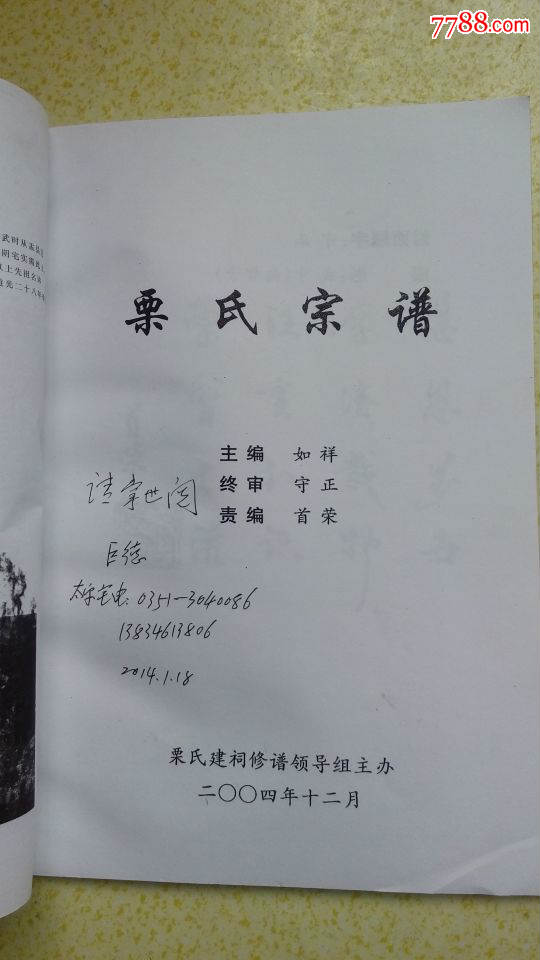 7788.com
武时从
期宅实
以上先祖公
道光二十八年
栗氏宗谱
主编 如祥
终审 守正
责编 首荣
请掌世阅
巨德
太原宅电:0351-3040086
13834613806
2014.1.18
栗氏建祠修谱领导组主办
二〇〇四年十二月